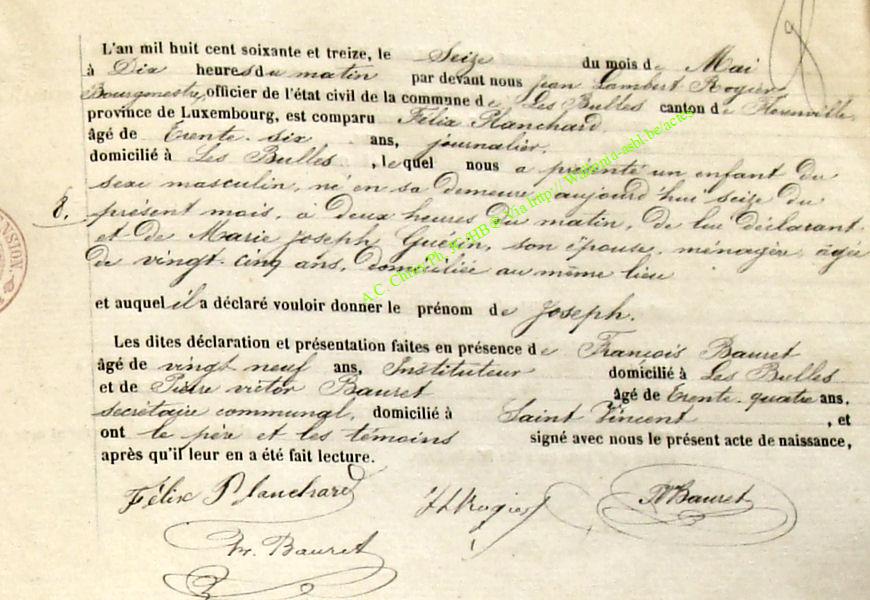 L'an mil huit cent soixante et treize, le Seize du mois de Mai
à Dix heures du matin par devant nous Jean Lambert Rogier
Bourgmestre, officier de l'état civil de la commune de Les Bulles canton de Florenville,
province de Luxembourg, est comparu Félix Planchard,
âgé de Trente-six ans, journalier,
domicilié à Les Bulles, lequel nous a présenté un enfant du
sexe masculin, né en sa demeure aujourd'hui seize du
8. présent mois, à deux heures du matin, de lui déclarant
et de Marie Joseph Guérin, son épouse, ménagère, âgée
de vingt-cinq ans, domiciliée au même lieu
et auquel il a déclaré vouloir donner le prénom de Joseph.
Les dites déclaration et présentation faites en présence de François Bauret
âgé de vingt neuf ans, Instituteur domicilié à Les Bulles
et de Pierre victor Bauret âgé de Trente-quatre ans,
secrétaire communal, domicilié à Saint Vincent, et
ont le père et les témoins signé avec nous le présent acte de naissance,
après qu'il leur en a été fait lecture.
Félix Planchard JLRogier PVBauret
Fr. Bauret
NSION.